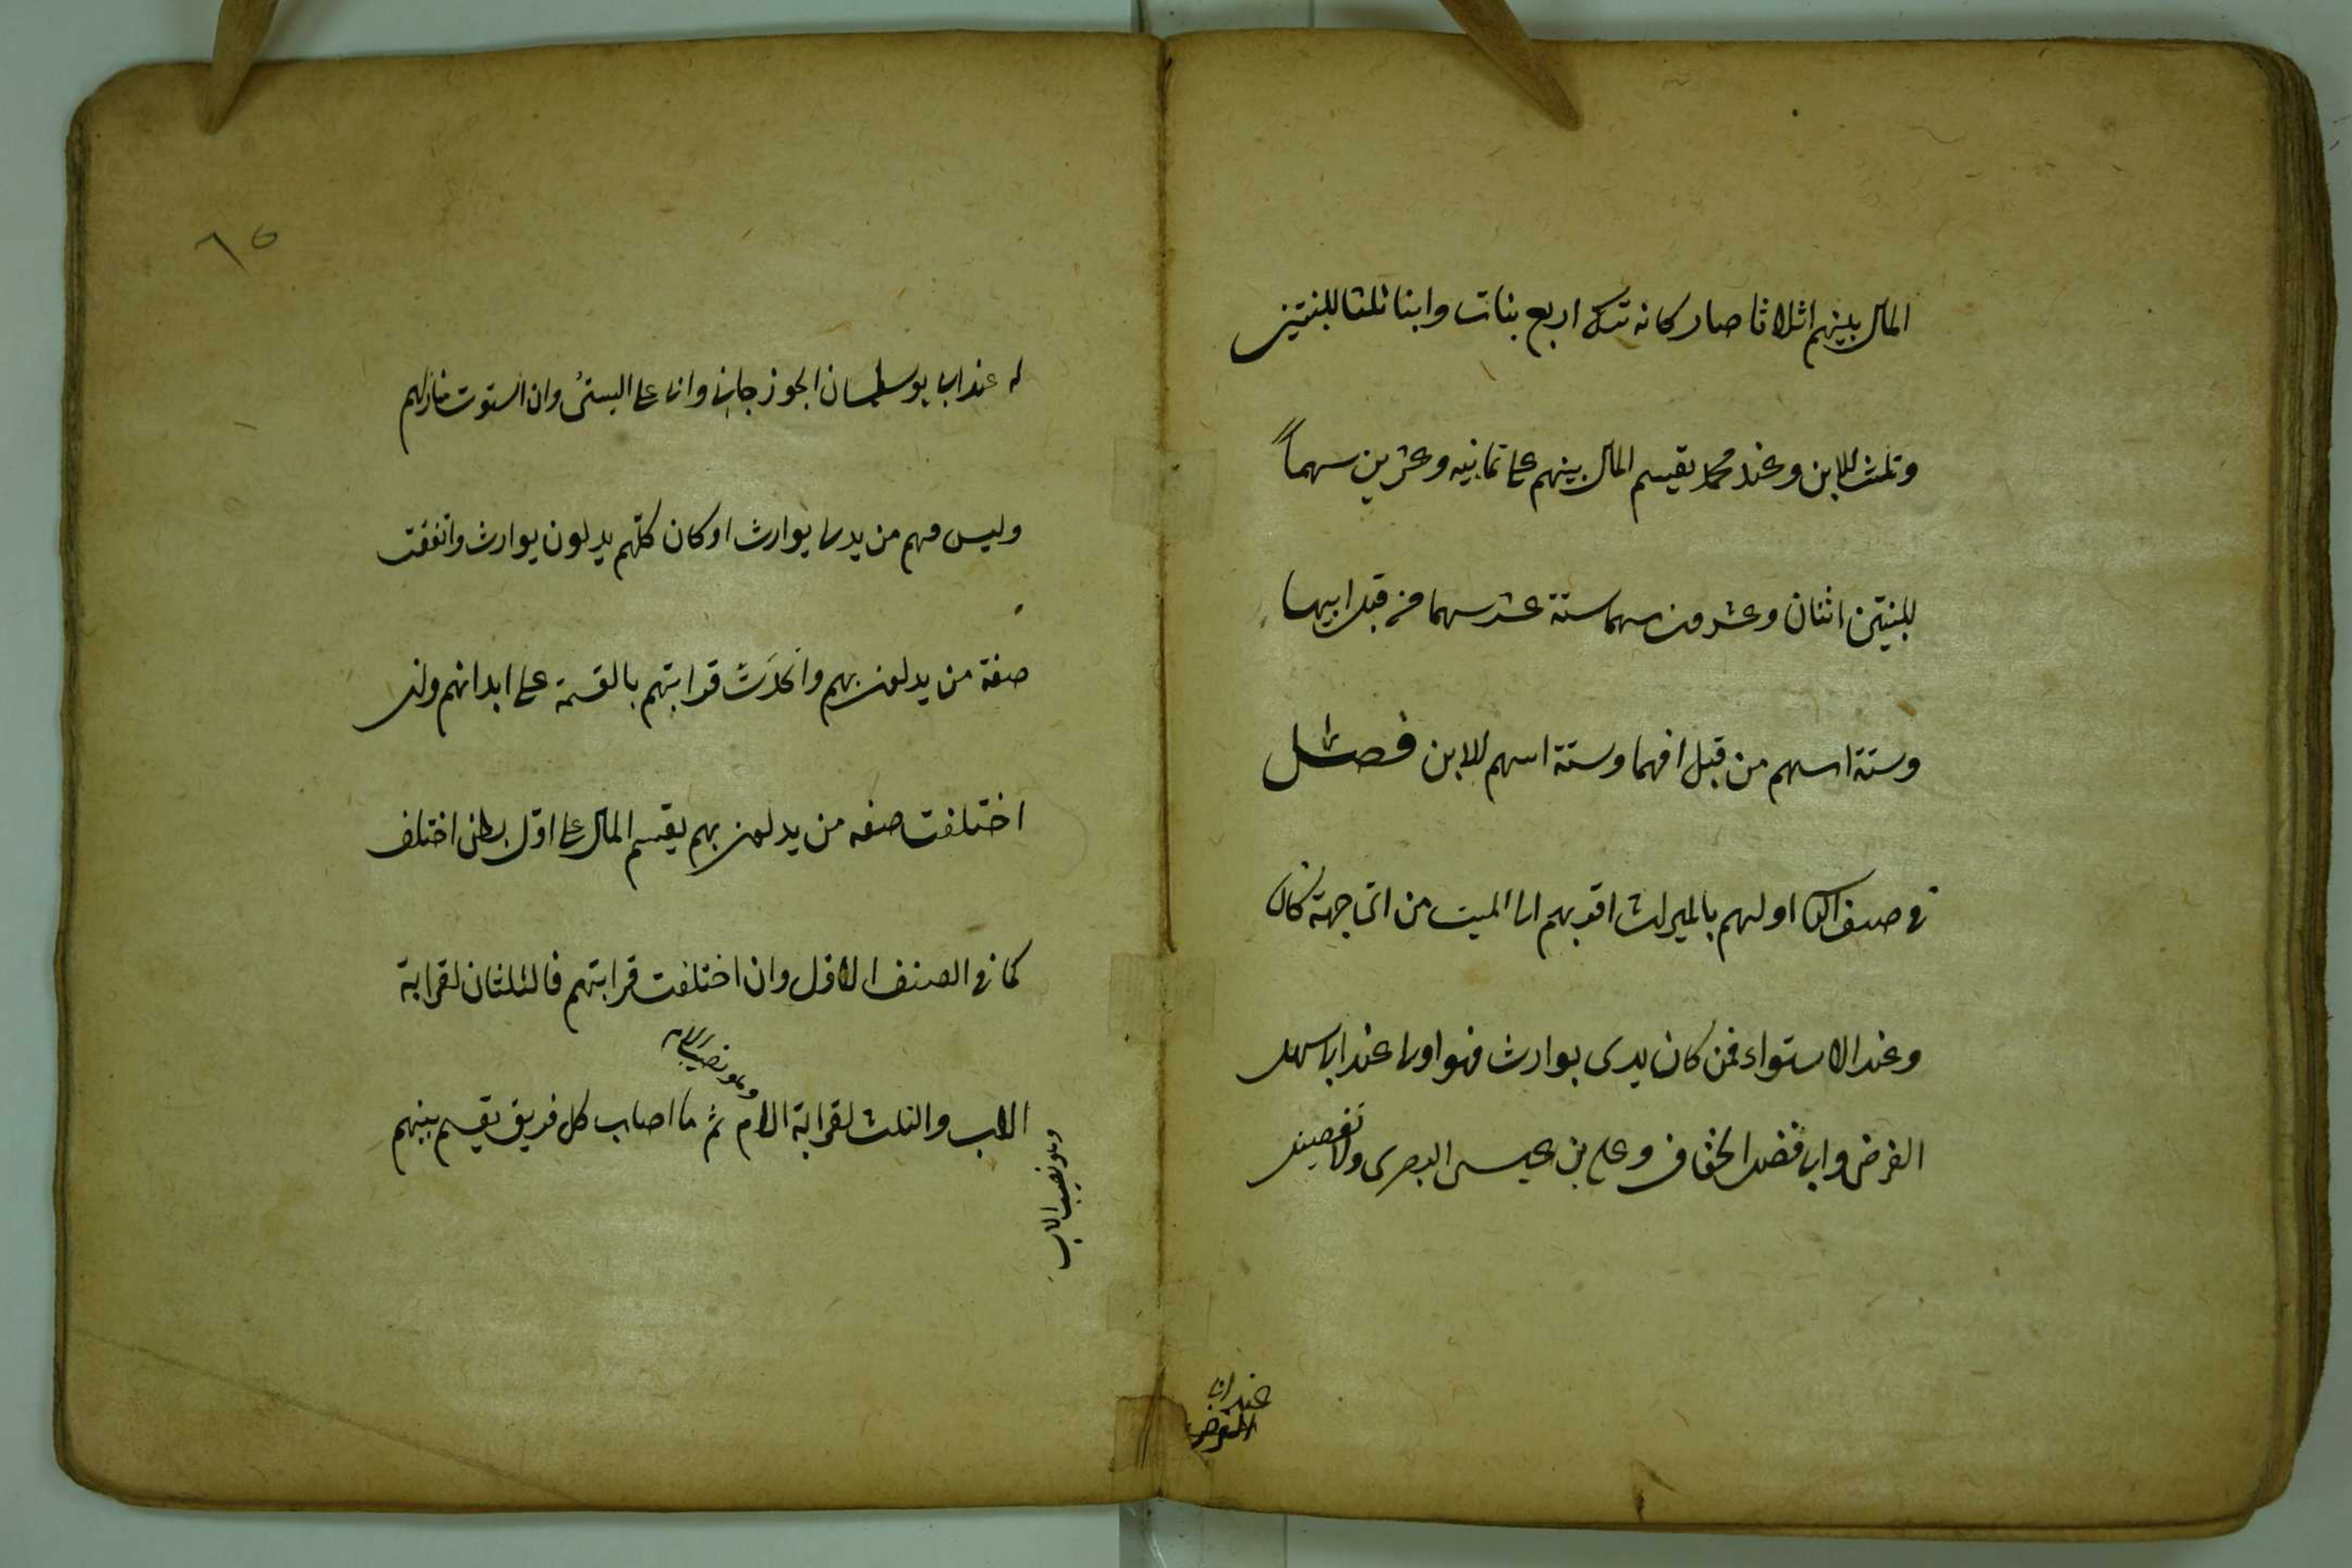 المال بينهم اثلاثا صار كانه ترك اربع بنات وابنا ثلثا للبنتين
وثلث للابن وعند محمد يقسم المال بينهم على ثمانيه وعشرين سهماً
للبنتين اثنان وعشرون سهما ستة عشر سهما من قبل ابيهما
وستة اسهم من قبل امهما وستة اسهم للابن فصل
في صنف الثانى اولهم بالميراث اقربهم الى الميت من اى جهة كان
وعند الاستواء فمن كان يدلى بوارث فهو اولى عند ابى سهل
الفرضى وابى فضل الخفاف وعلى بن عيسى البصرى ولا تفصيل
عند ابى
له عند ابى سليمان الجوزجانى وابى على البستى وان استوت منازلهم
وليس فيهم من يدلى بوارث او كان كلهم يدلون بوارث واتفقت
صفة من يدلون بهم واتحدَت قرابتهم بالقسمة على ابدانهم وان
اختلفت صفه من يدلون بهم يقسم المال على اول بطن اختلف
كما في الصنف الاول وان اختلفت قرابتهم فالثلثان لقرابة
الاب والثلث لقرابة الام ثم ما اصاب كل فريق يقسم بينهم
وهو نصيب الام
وهو نصيب الاب